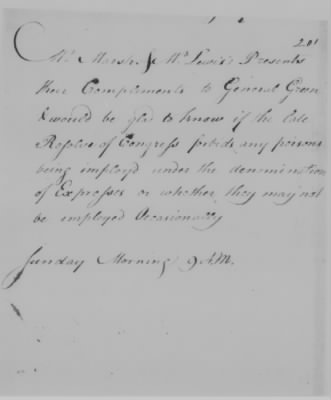 201
Mr. Marsh & Mr. Lewis's Presents
their Complements to General Green
& would be glad to know if the late
Resolve of Congress forbids any persons
being imployd under the denomination
of Expresses or whether they may not
be employed Occasionally
Sunday Morning 9 AM.